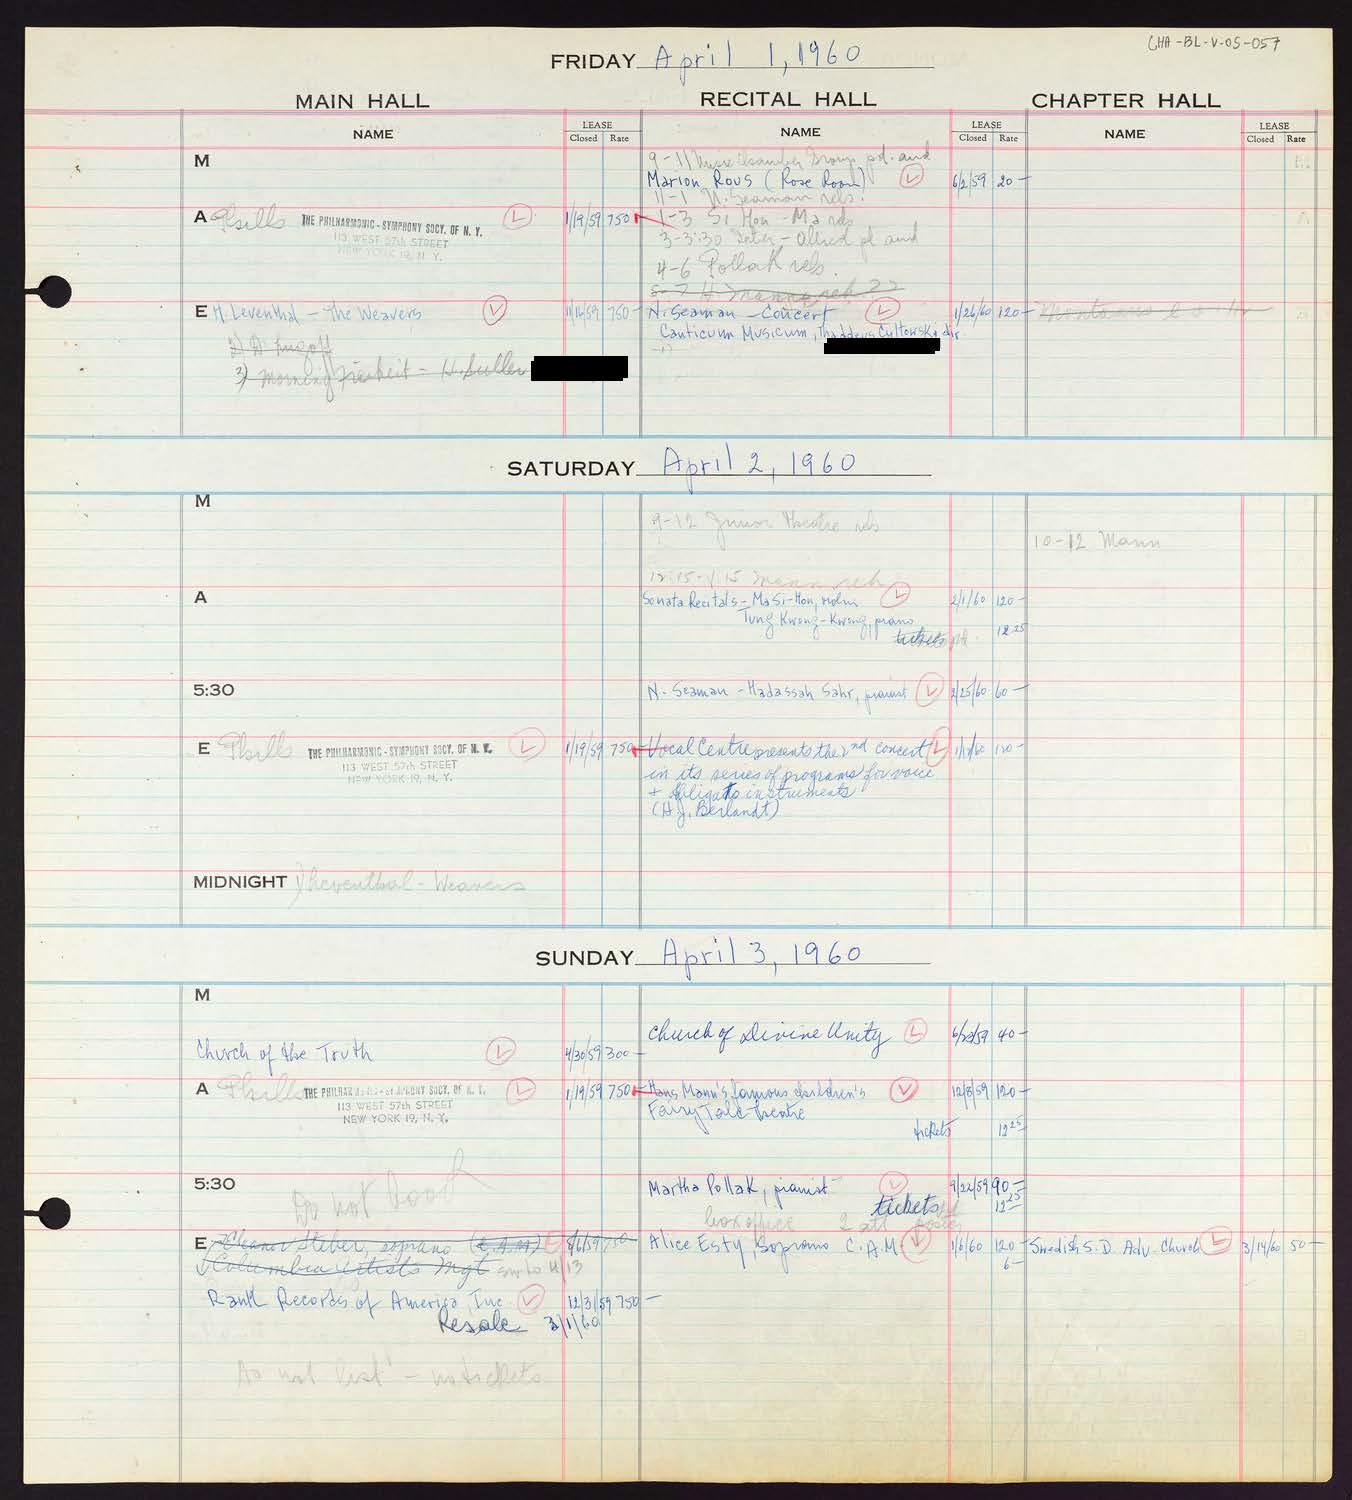 CHA-BL-V-05-057
FRIDAY April 1, 1960
MAIN HALL RECITAL HALL CHAPTER HALL
NAME LEASE Closed Rate NAME LEASE Closed Rate NAME LEASE Closed Rate
M
9-11 Music Chamber Group pd. aud
Marion Rous (Rose Room) L 6/2/59 20-
11-1 N. Seaman rehs.
A Phills THE PHILHARMONIC-SYMPHONY SOCY. OF N. Y. L 1/19/59 750
113 WEST 57th STREET
NEW YORK 19, N. Y.
1-3 Si Hon - Ma rehs
3-3:30 - Allred pd aud
4-6 Pollak rehs.
5-7 H. Mann reh ??
E H. Leventhal - The Weavers L 11/16/59 750-
N. Seaman - Concert L 1/26/60 120-
Canticum Musicum, Thaddeus dir
3) Morning Freiheit - H.
SATURDAY April 2, 1960
M
9-12 Junior Theatre rehs
10-12 Mann
12:15-1:15 Mann reh
A
Sonata Recitals - Ma Si-Hon, violin L 2/1/60 120-
Tung Kwong-Kwong, piano
tickets pd. 12 25
5:30
N. Seaman - Hadassah Sahr, pianist L 2/25/60 60-
E Phills THE PHILHARMONIC-SYMPHONY SOCY. OF N. Y. L 1/19/59 750
113 WEST 57th STREET
NEW YORK 19, N. Y.
Vocal Centre presents the 2nd concert L 120-
in its series of programs for voice
+ obligato instruments
(H.J. Berlandt)
MIDNIGHT 1) Leventhal - Weavers
SUNDAY April 3, 1960
M
Church of Divine Unity L 6/22/59 40-
Church of the Truth L 4/30/59 300-
A Phills THE PHILHARMONIC-SYMPHONY SOCY. OF N. Y. L 1/19/59 750
113 WEST 57th STREET
NEW YORK 19, N. Y.
Hans Mann's famous children's L 12/8/59 120-
Fairy Tale Theatre
tickets 12 25
5:30
Do not book
Martha Pollak, pianist L 9/22/59 90-
tickets pd 12 25
box office 2 att poster
E Eleanor Steber, soprano (C.A.M.) L 750
Columbia Artists Mgt sw to 4/13
Alice Esty, Soprano C.A.M. L 1/6/60 120-
6-
Swedish S.D. Adv. Church L 3/14/60 50-
Rank Records of America, Inc. L 12/3/59 750-
Resale 3/1/60
Do not list - no tickets